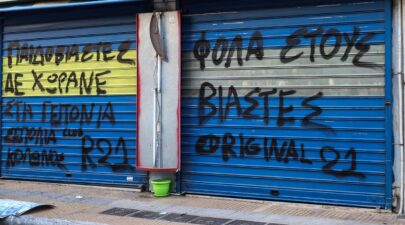 ΠΑΙΔΟΒΙΑΣΤΕΣ
ΔΕ ΧΩΡΑΝΕ
ΣΤΗ ΓΕΙΤΟΝΙΑ
ΣΕΠΟΛΙΑ CLUB
ΚΟΛΩΝΟΣ R21
ΦΟΛΑ ΣΤΟΥΣ
ΒΙΑΣΤΕΣ
ORIGINAL 21